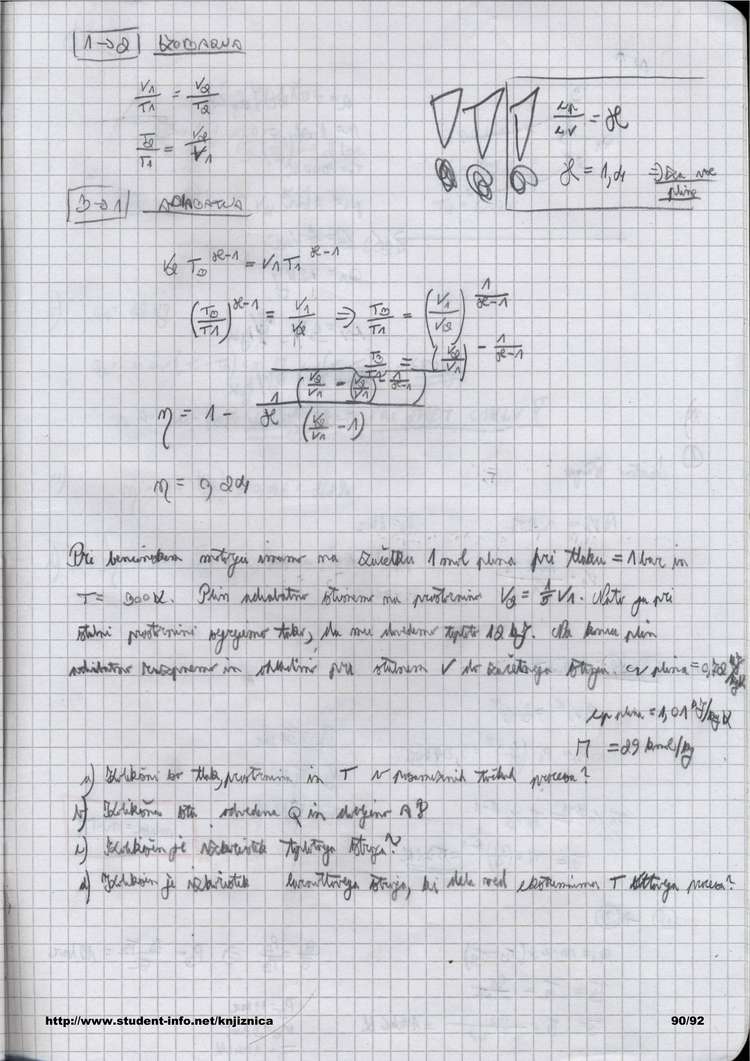 1→2 IZOBARNA
V1/T1 = V2/T2
T2/T1 = V2/V1
cp/cv = ϰ
ϰ = 1,4 ⇒ za vse
pline
3→1 ADIABATNA
V2 T3^(ϰ-1) = V1 T1^(ϰ-1)
(T3/T1)^(ϰ-1) = V1/V2 ⇒ T3/T1 = (V1/V2)^(1/(ϰ-1))
T3/T1 = (V2/V1)^(-1/(ϰ-1))
η = 1 - 1/ϰ (V2/V1 - (V2/V1)^(-1/(ϰ-1))) / (V2/V1 - 1)
η = 0,24
Pri bencinskem motorju imamo na začetku 1 mol plina pri tlaku = 1 bar in
T = 300K. Plin adiabatno stisnemo na prostornino V2 = 1/5 V1. Nato ga pri
stalni prostornini segrejemo tako, da mu dovedemo toploto 12 kJ. Na koncu plin
adiabatno razpnemo in ohladimo pri stalnem V do začetnega stanja. cv plina = 0,72 kJ/kgK
cp plina = 1,01 kJ/kgK
M = 29 kmol/kg
a) Kolikšni so tlak, prostornina in T v posameznih točkah procesa?
b) Kolikšna sta odvedena Q in dovedeno A?
c) Kolikšen je izkoristek toplotnega stroja?
d) Kolikšen je izkoristek Carnottovega stroja, ki dela med ekstremnima T procesa?
http://www.student-info.net/knjiznica
90/92